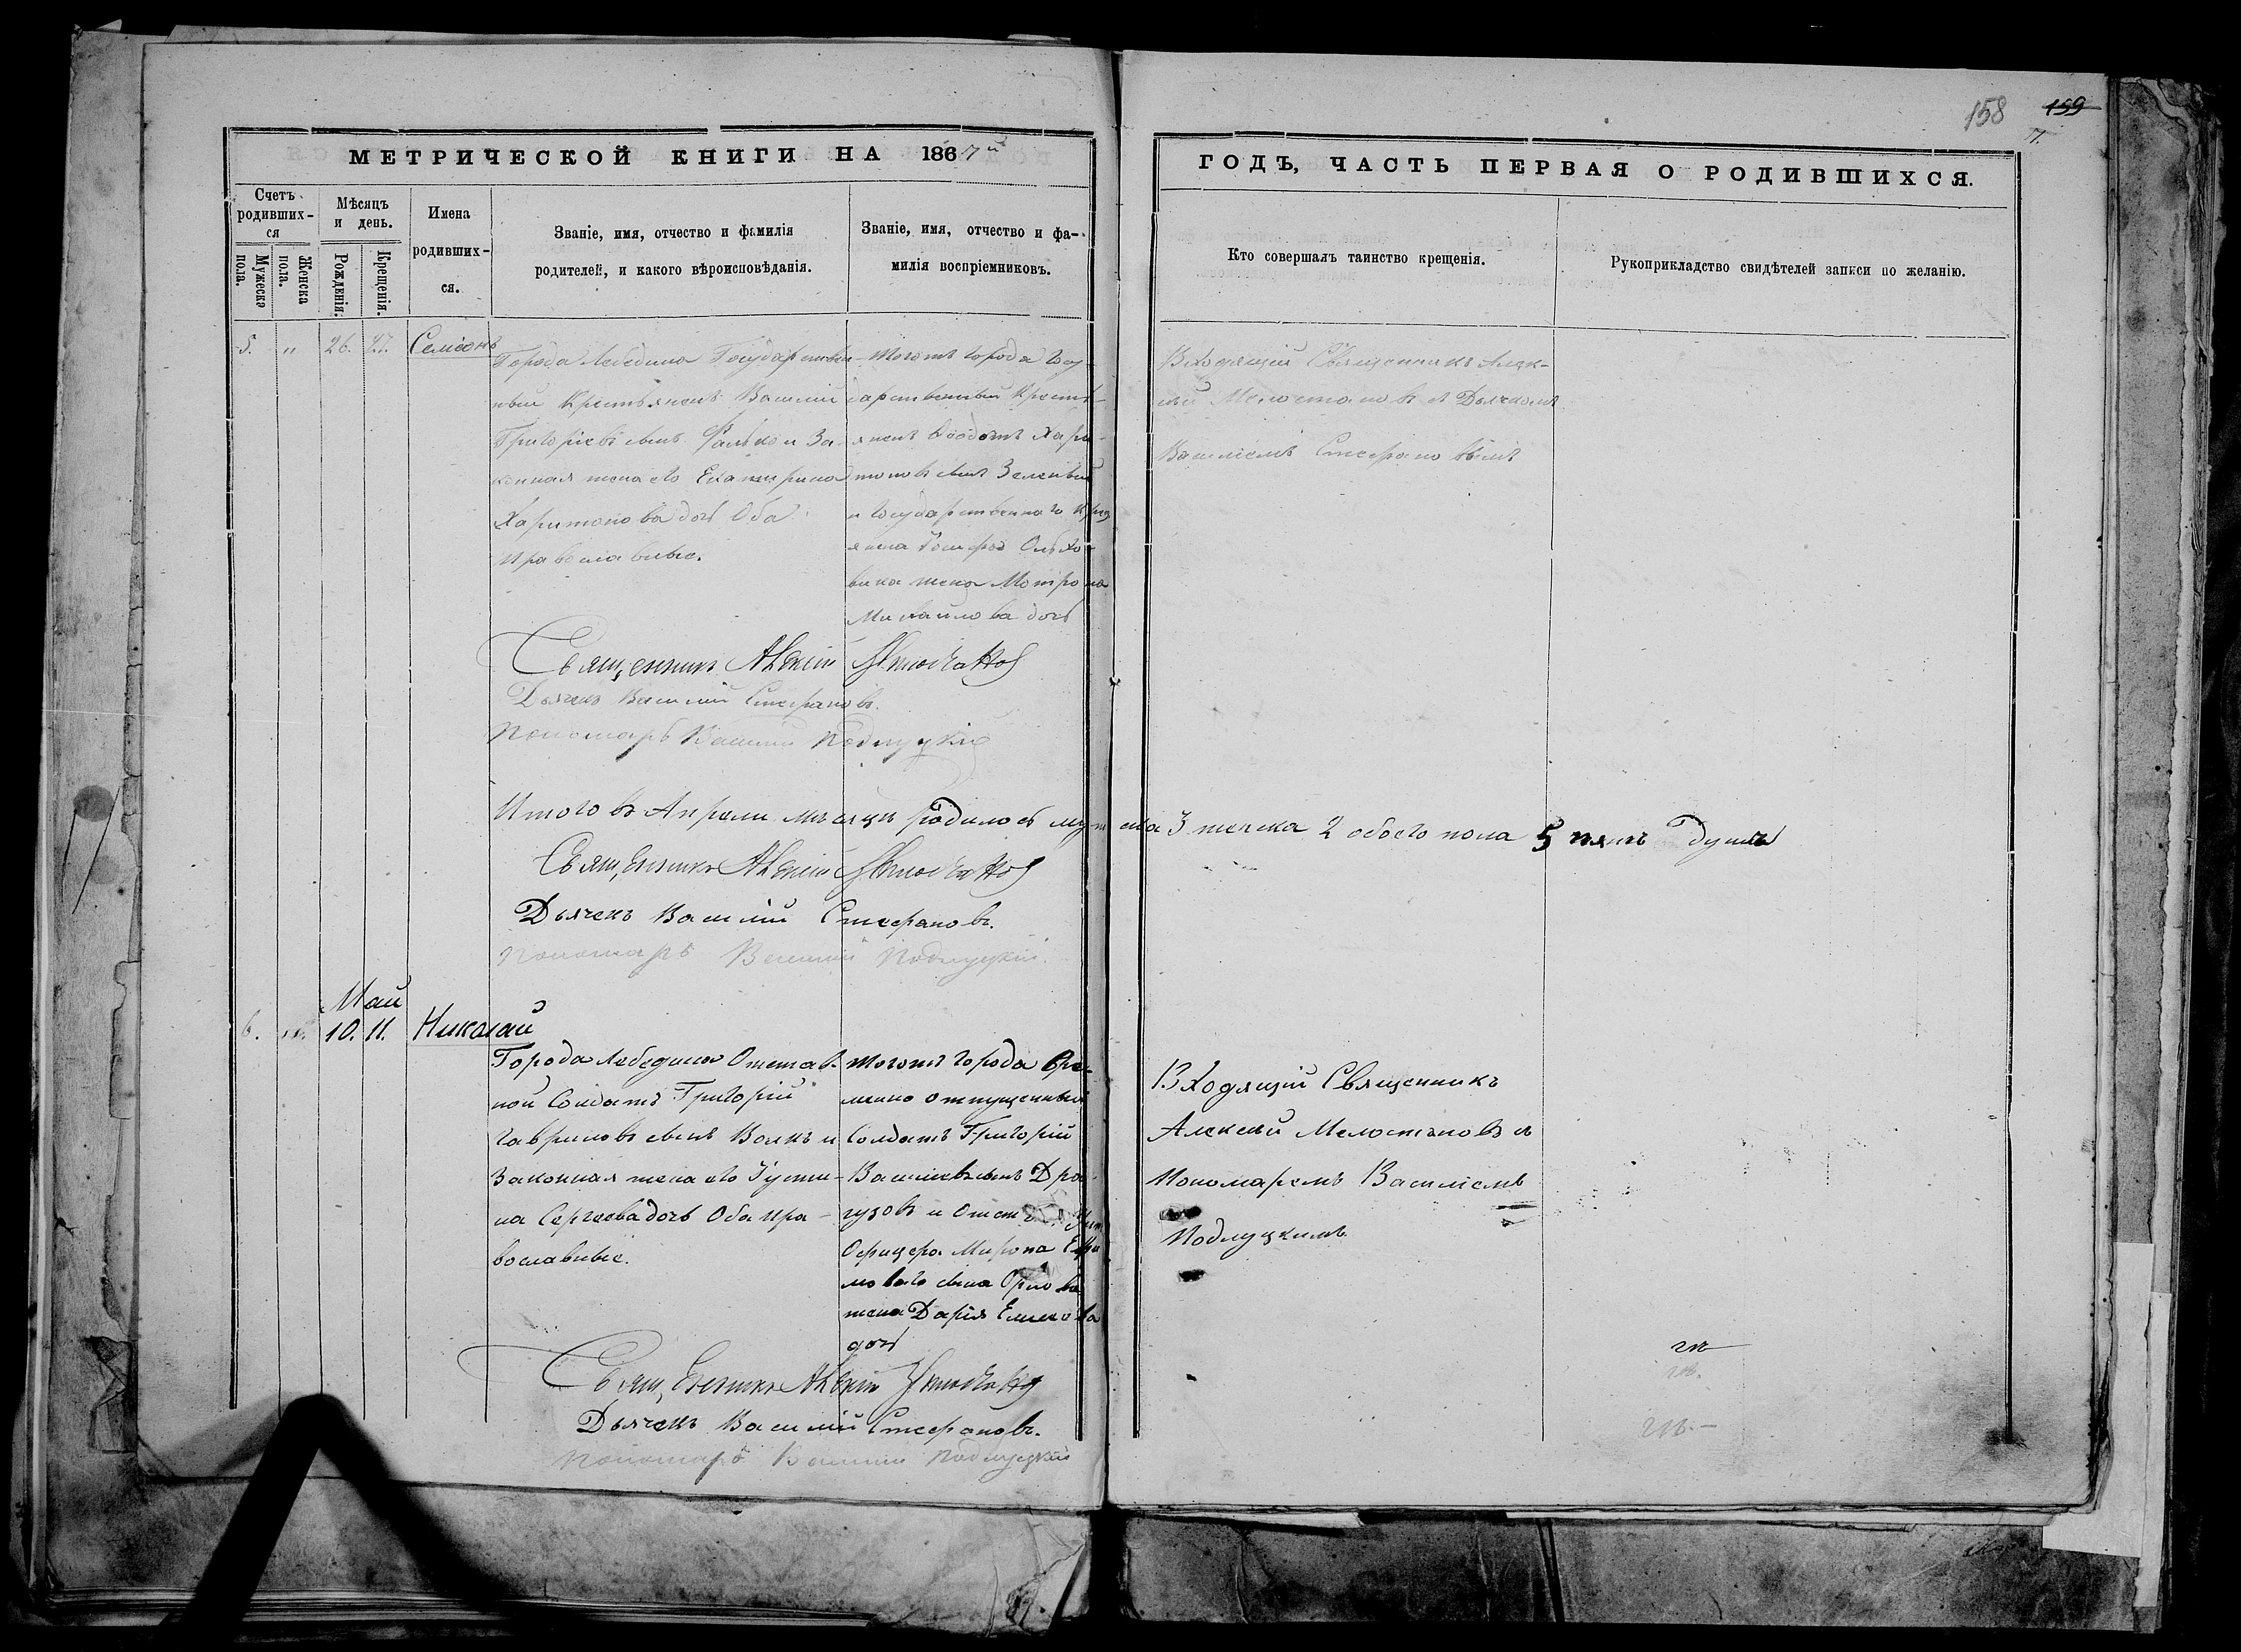 158 159
МЕТРИЧЕСКОЙ КНИГИ НА 1867й
ГОДЪ, ЧАСТЬ ПЕРВАЯ О РОДИВШИХСЯ.
Счетъ родивших-
ся
Мужеска пола.
Женска пола.
Мѣсяцъ
и день.
Рожденія.
Крещенія.
Имена
родивших-
ся.
Званіе, имя, отчество и фамилія
родителей, и какого вѣроисповѣданія.
Званіе, имя, отчество и фа-
милія воспріемниковъ.
Кто совершалъ таинство крещенія.
Рукоприкладство свидѣтелей записи по желанію.
5. " 26. 27. Семіонъ
Города Лебедина Государствен-
ный Крестьянинъ Василій
Григоріевъ сынъ и За-
конная жена его Екатерина
Харитонова дочь Оба
православные.
Тогожъ города Госу-
дарственный Кресть-
янинъ Ѳеодотъ Хари-
тоновъ сынъ Зеленый
и Государственнаго Крес
янина Ольхо-
вика жена Мотрона
Михайлова дочь
Входящій Священникъ Алек-
сій съ Дьячкомъ
Василіемъ Стефановымъ
Священникъ Алексій
Дьячекъ Василій Стефановъ.
Пономарь Василій Подлуцкій
Итого въ Апрели мѣсяцѣ родилось мужеска 3 женска 2 обоего пола 5 пять душъ
Священникъ Алексій
Дьячекъ Василій Стефановъ.
Пономарь Василій Подлуцкій.
Май
6. " 10. 11. Николай
Города Лебедина Отстав-
ной Солдатъ Григорій
Гавриловъ сынъ Волкъ и
Законная жена его Іусти-
на Сергеева дочь Оба пра-
вославные.
Тогожъ города Вре-
менно отпущенный
Солдатъ Григорій
Васильевъ сынъ Дро-
гузовъ и Отст Унт
Офицера Мирона Ефи
мового сына Орлова
жена Дарія
дочь
Входящій Священникъ
Алексій съ
Пономаремъ Василіемъ
Подлуцкимъ
Священникъ Алексій
Дьячекъ Василій Стефановъ.
Пономарь Василій Подлуцкій